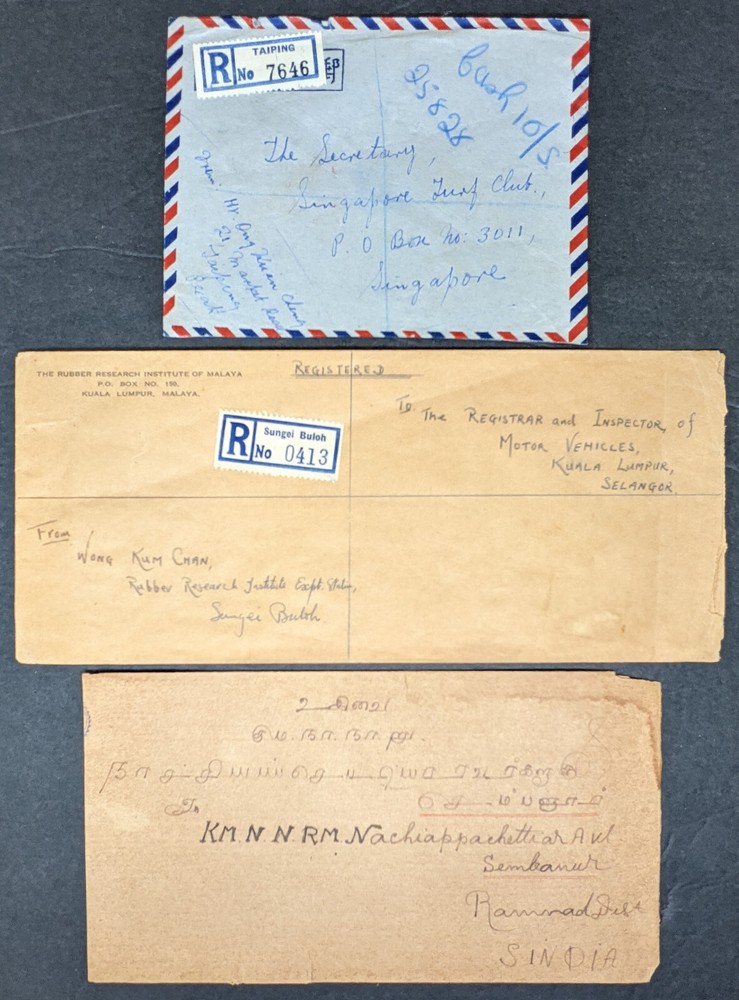 TAIPING
R No 7646
Cash 10/5
25828
The Secretary,
Singapore Turf Club.,
P. O Box No: 3011,
Singapore
From: Mr. Ong
21, Market Road
Taiping
Perak
THE RUBBER RESEARCH INSTITUTE OF MALAYA
P.O. BOX NO. 150,
KUALA LUMPUR, MALAYA.
REGISTERED
R Sungei Buloh
No 0413
To The REGISTRAR and INSPECTOR, of
MOTOR VEHICLES,
KUALA LUMPUR,
SELANGOR.
From
WONG KUM CHAN,
Rubber Research Institute Expt. Station,
Sungei Buloh.
உ சிவை
செம்பனூர்
To
KM. N. N. RM. Nachiappachettiar Avl
Sembanur
Ramnad Dist
S INDIA